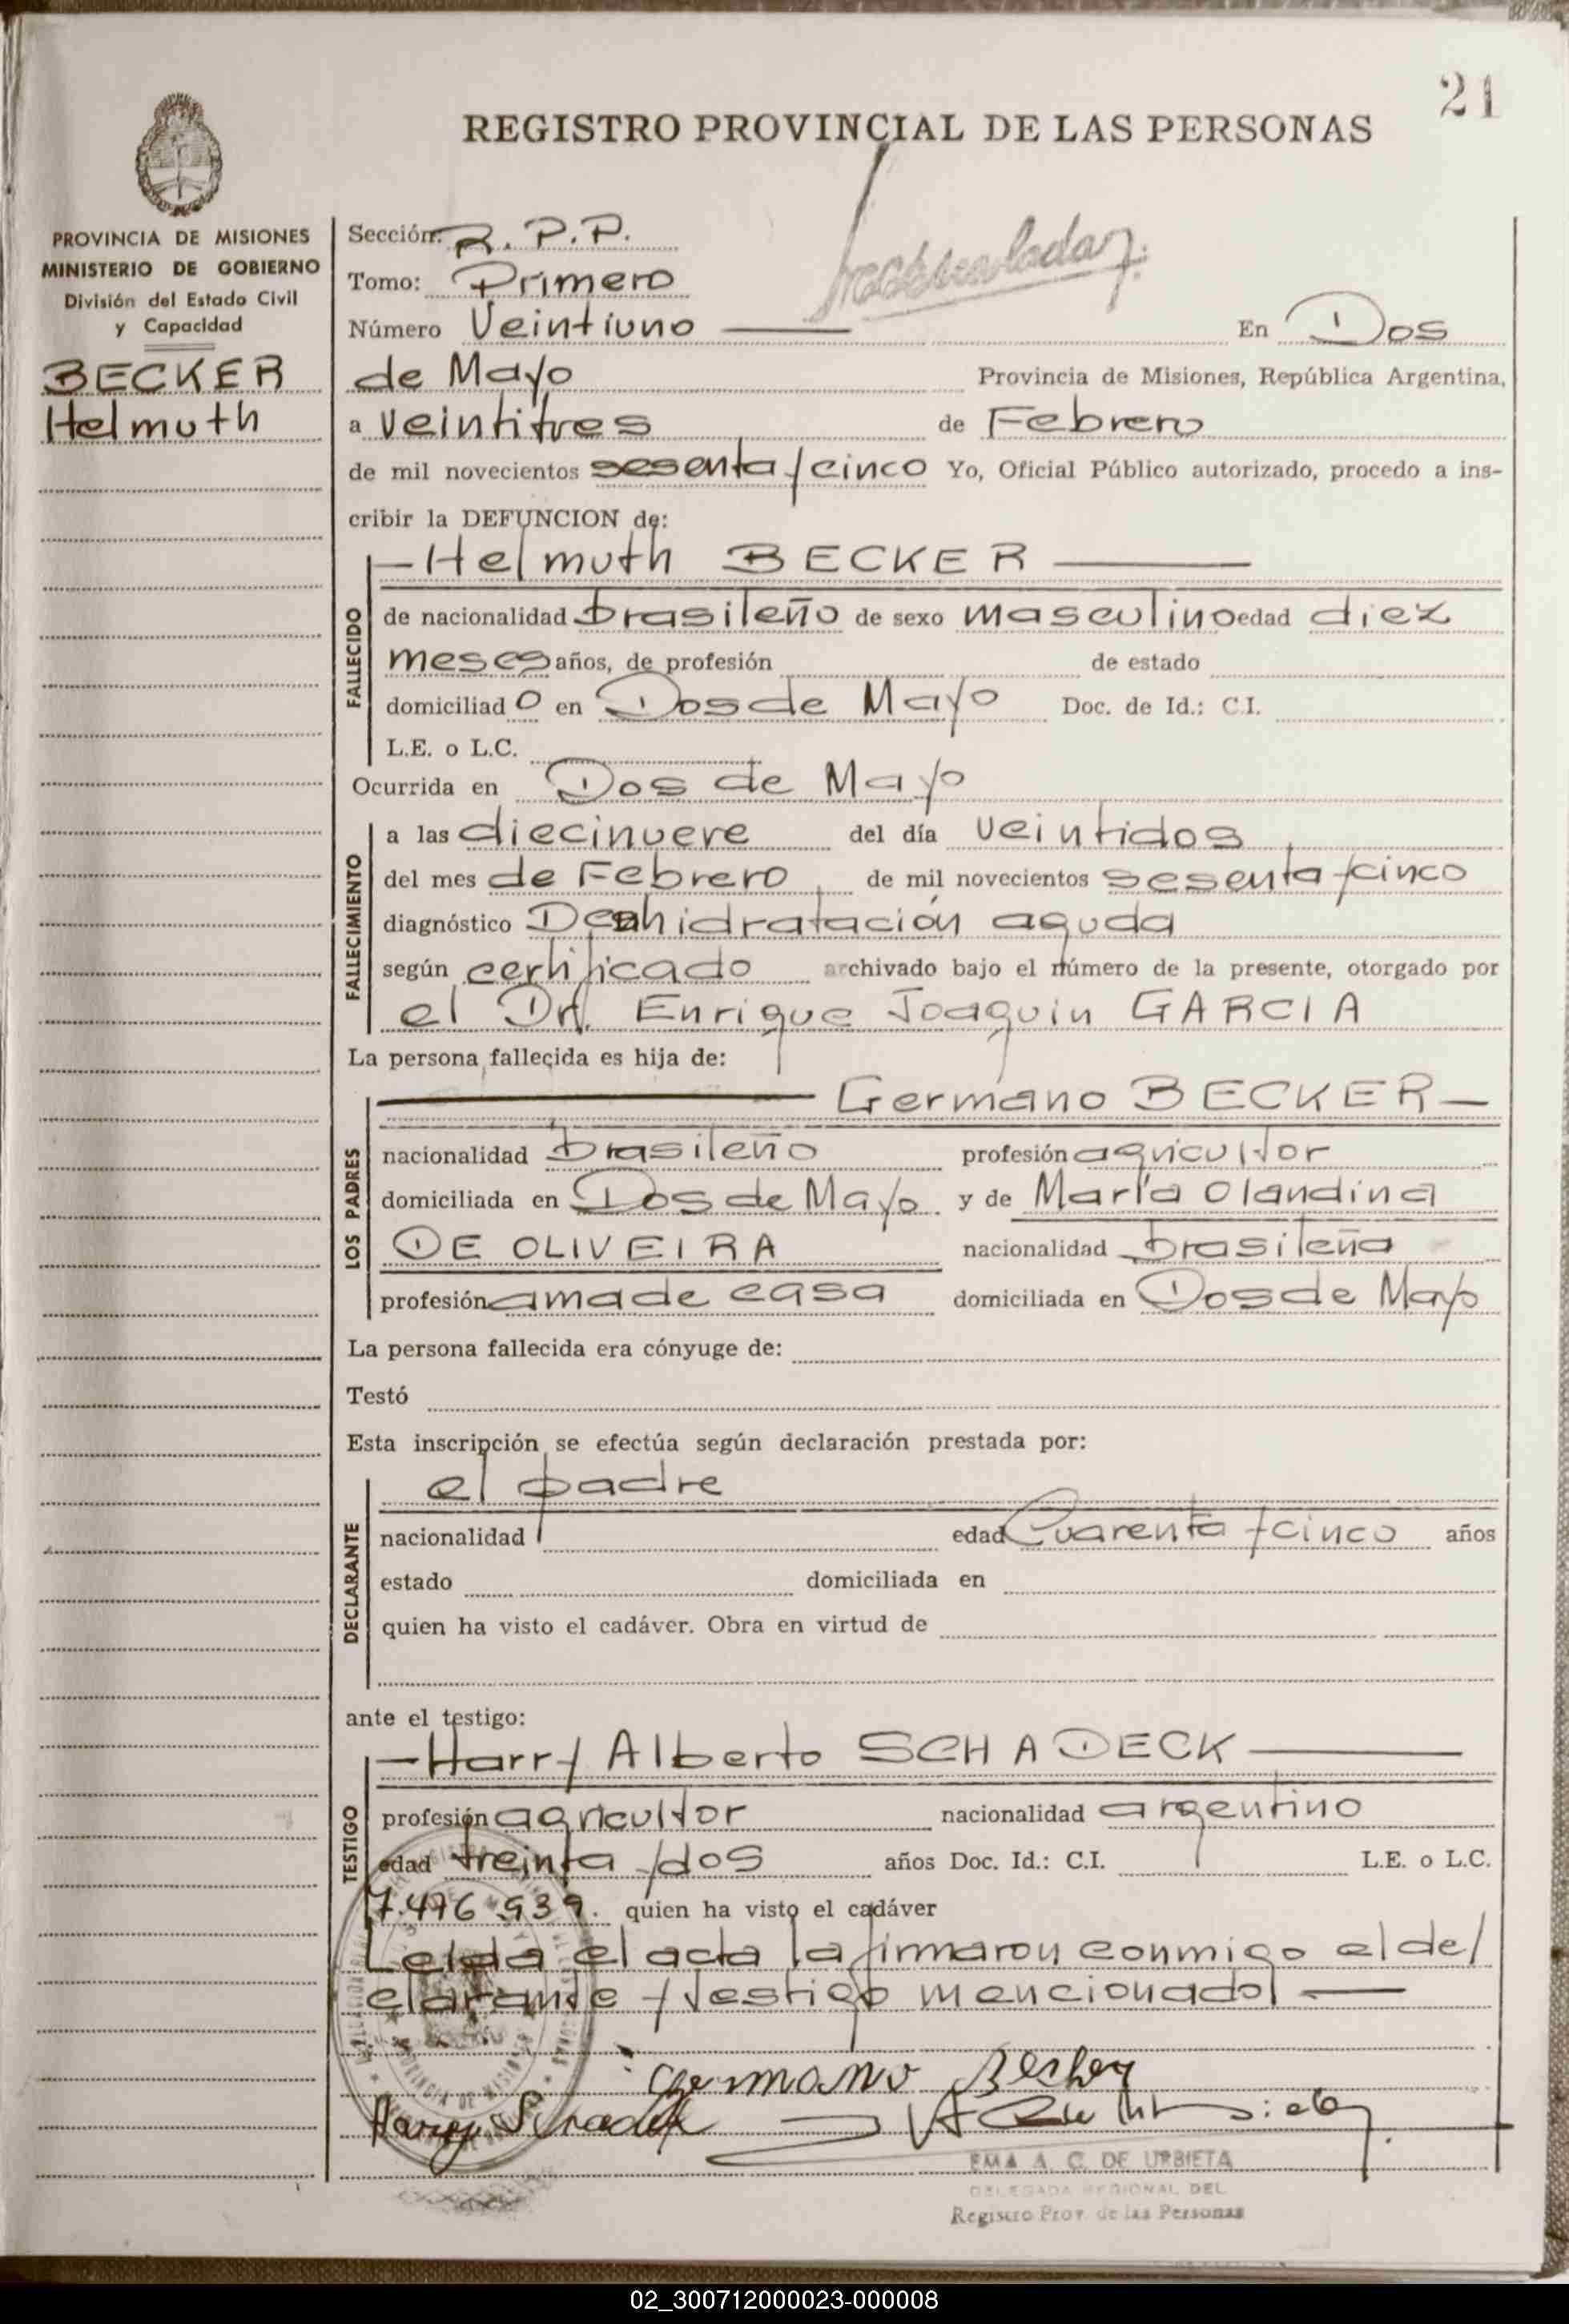 21
REGISTRO PROVINCIAL DE LAS PERSONAS
PROVINCIA DE MISIONES
MINISTERIO DE GOBIERNO
División del Estado Civil
y Capacidad
BECKER
Helmuth
Sección: R.P.P.
Tomo: Primero
Número Veintiuno En Dos
de Mayo Provincia de Misiones, República Argentina,
a veintitres de Febrero
de mil novecientos sesenta y cinco Yo, Oficial Público autorizado, procedo a ins-
cribir la DEFUNCION de:
FALLECIDO
Helmuth BECKER
de nacionalidad brasileño de sexo masculino edad diez
meses años, de profesión de estado
domiciliado en Dos de Mayo Doc. de Id.: C.I.
L.E. o L.C.
Ocurrida en Dos de Mayo
FALLECIMIENTO
a las diecinueve del día veintidos
del mes de Febrero, de mil novecientos sesenta y cinco
diagnóstico Deshidratación aguda
según certificado archivado bajo el número de la presente, otorgado por
el Dr. Enrique Joaquin GARCIA
La persona fallecida es hija de:
LOS PADRES
Germano BECKER
nacionalidad brasileño profesión agricultor
domiciliada en Dos de Mayo. y de María Olandina
DE OLIVEIRA nacionalidad brasileña
profesión ama de casa domiciliada en Dos de Mayo
La persona fallecida era cónyuge de:
Testó
Esta inscripción se efectúa según declaración prestada por:
DECLARANTE
el padre
nacionalidad edad Cuarenta y cinco años
estado domiciliada en
quien ha visto el cadáver. Obra en virtud de
ante el testigo:
TESTIGO
Harry Alberto SCHADECK
profesión agricultor nacionalidad argentino
edad treinta y dos años Doc. Id.: C.I. L.E. o L.C.
7.476.939. quien ha visto el cadáver
Leida el acta la firmaron conmigo el de/
clarante y testigo mencionado
Germano Becker
Harry Schadek
EMA A. C. DE URBIETA
DELEGADA REGIONAL DEL
Registro Prov. de las Personas
02_300712000023-000008